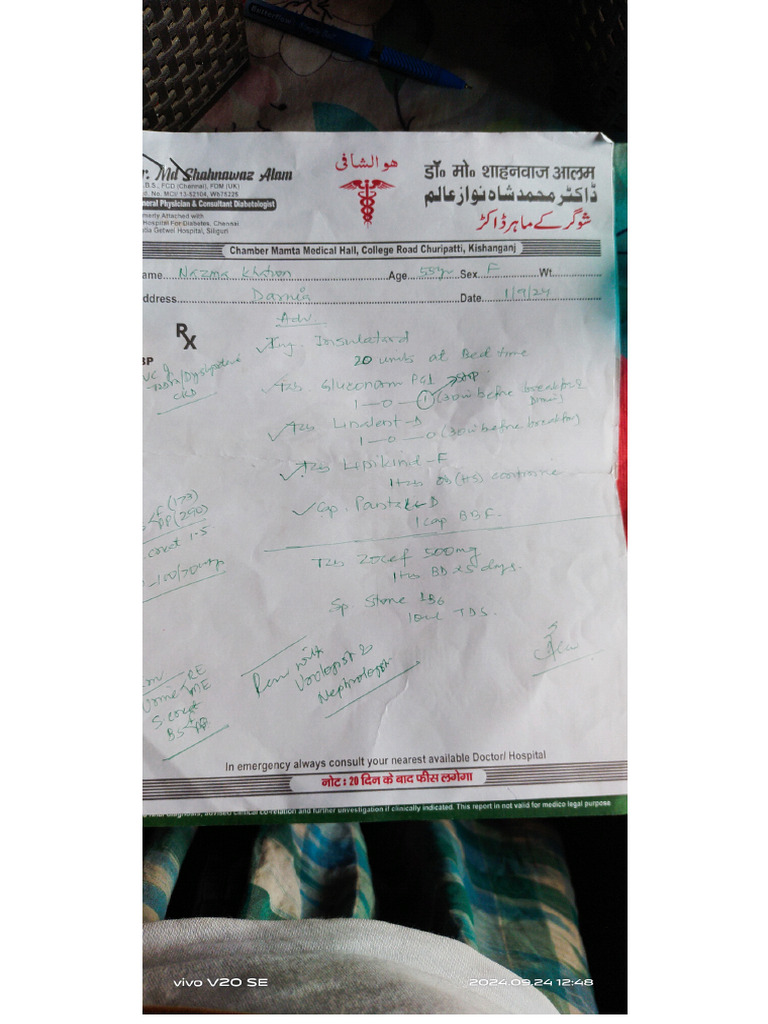 r. Md Shahnawaz Alam
.B.S., FCD (Chennai), FDM (UK)
d. No. MCI/ 13-52104, Wb75225
eneral Physician & Consultant Diabetologist
ormerly Attached with
Hospital For Diabetes, Chennai
da Getwel Hospital, Siliguri
ھوالشافی
डॉ० मो० शाहनवाज आलम
ڈاکٹر محمد شاہ نواز عالم
شوگر کے ماہر ڈاکٹر
Chamber Mamta Medical Hall, College Road Churipatti, Kishanganj
ame Nazma Khatoon Age 55yr Sex F Wt.
ddress Date 1/9/24
Adv.
Rx
BP
CKD
Inj. Insulatard
20 units at Bed time
Tab. Gluconorm PG1
1-0-1 (30 before breakfast &
Dinner)
-D
1-0-0 (30 before breakfast)
Tab Lipikind-F
1 tab (HS) continue
Cap. -D
1 cap BBF.
F (173)
PP (290)
creat 1.5
-100/70
Tab Zocef 500mg
1 tab BD x 5 days.
Sp. Stone
TDS.
Rev with
Urologist &
Nephrologist
RE
Urine ME
S creat
BS
In emergency always consult your nearest available Doctor/ Hospital
नोट : 20 दिन के बाद फीस लगेगा
diagnosis, advised clinical co-relation and further unvestigation if clinically indicated. This report in not valid for medico legal purpose
vivo V20 SE
2024.09.24 12:48